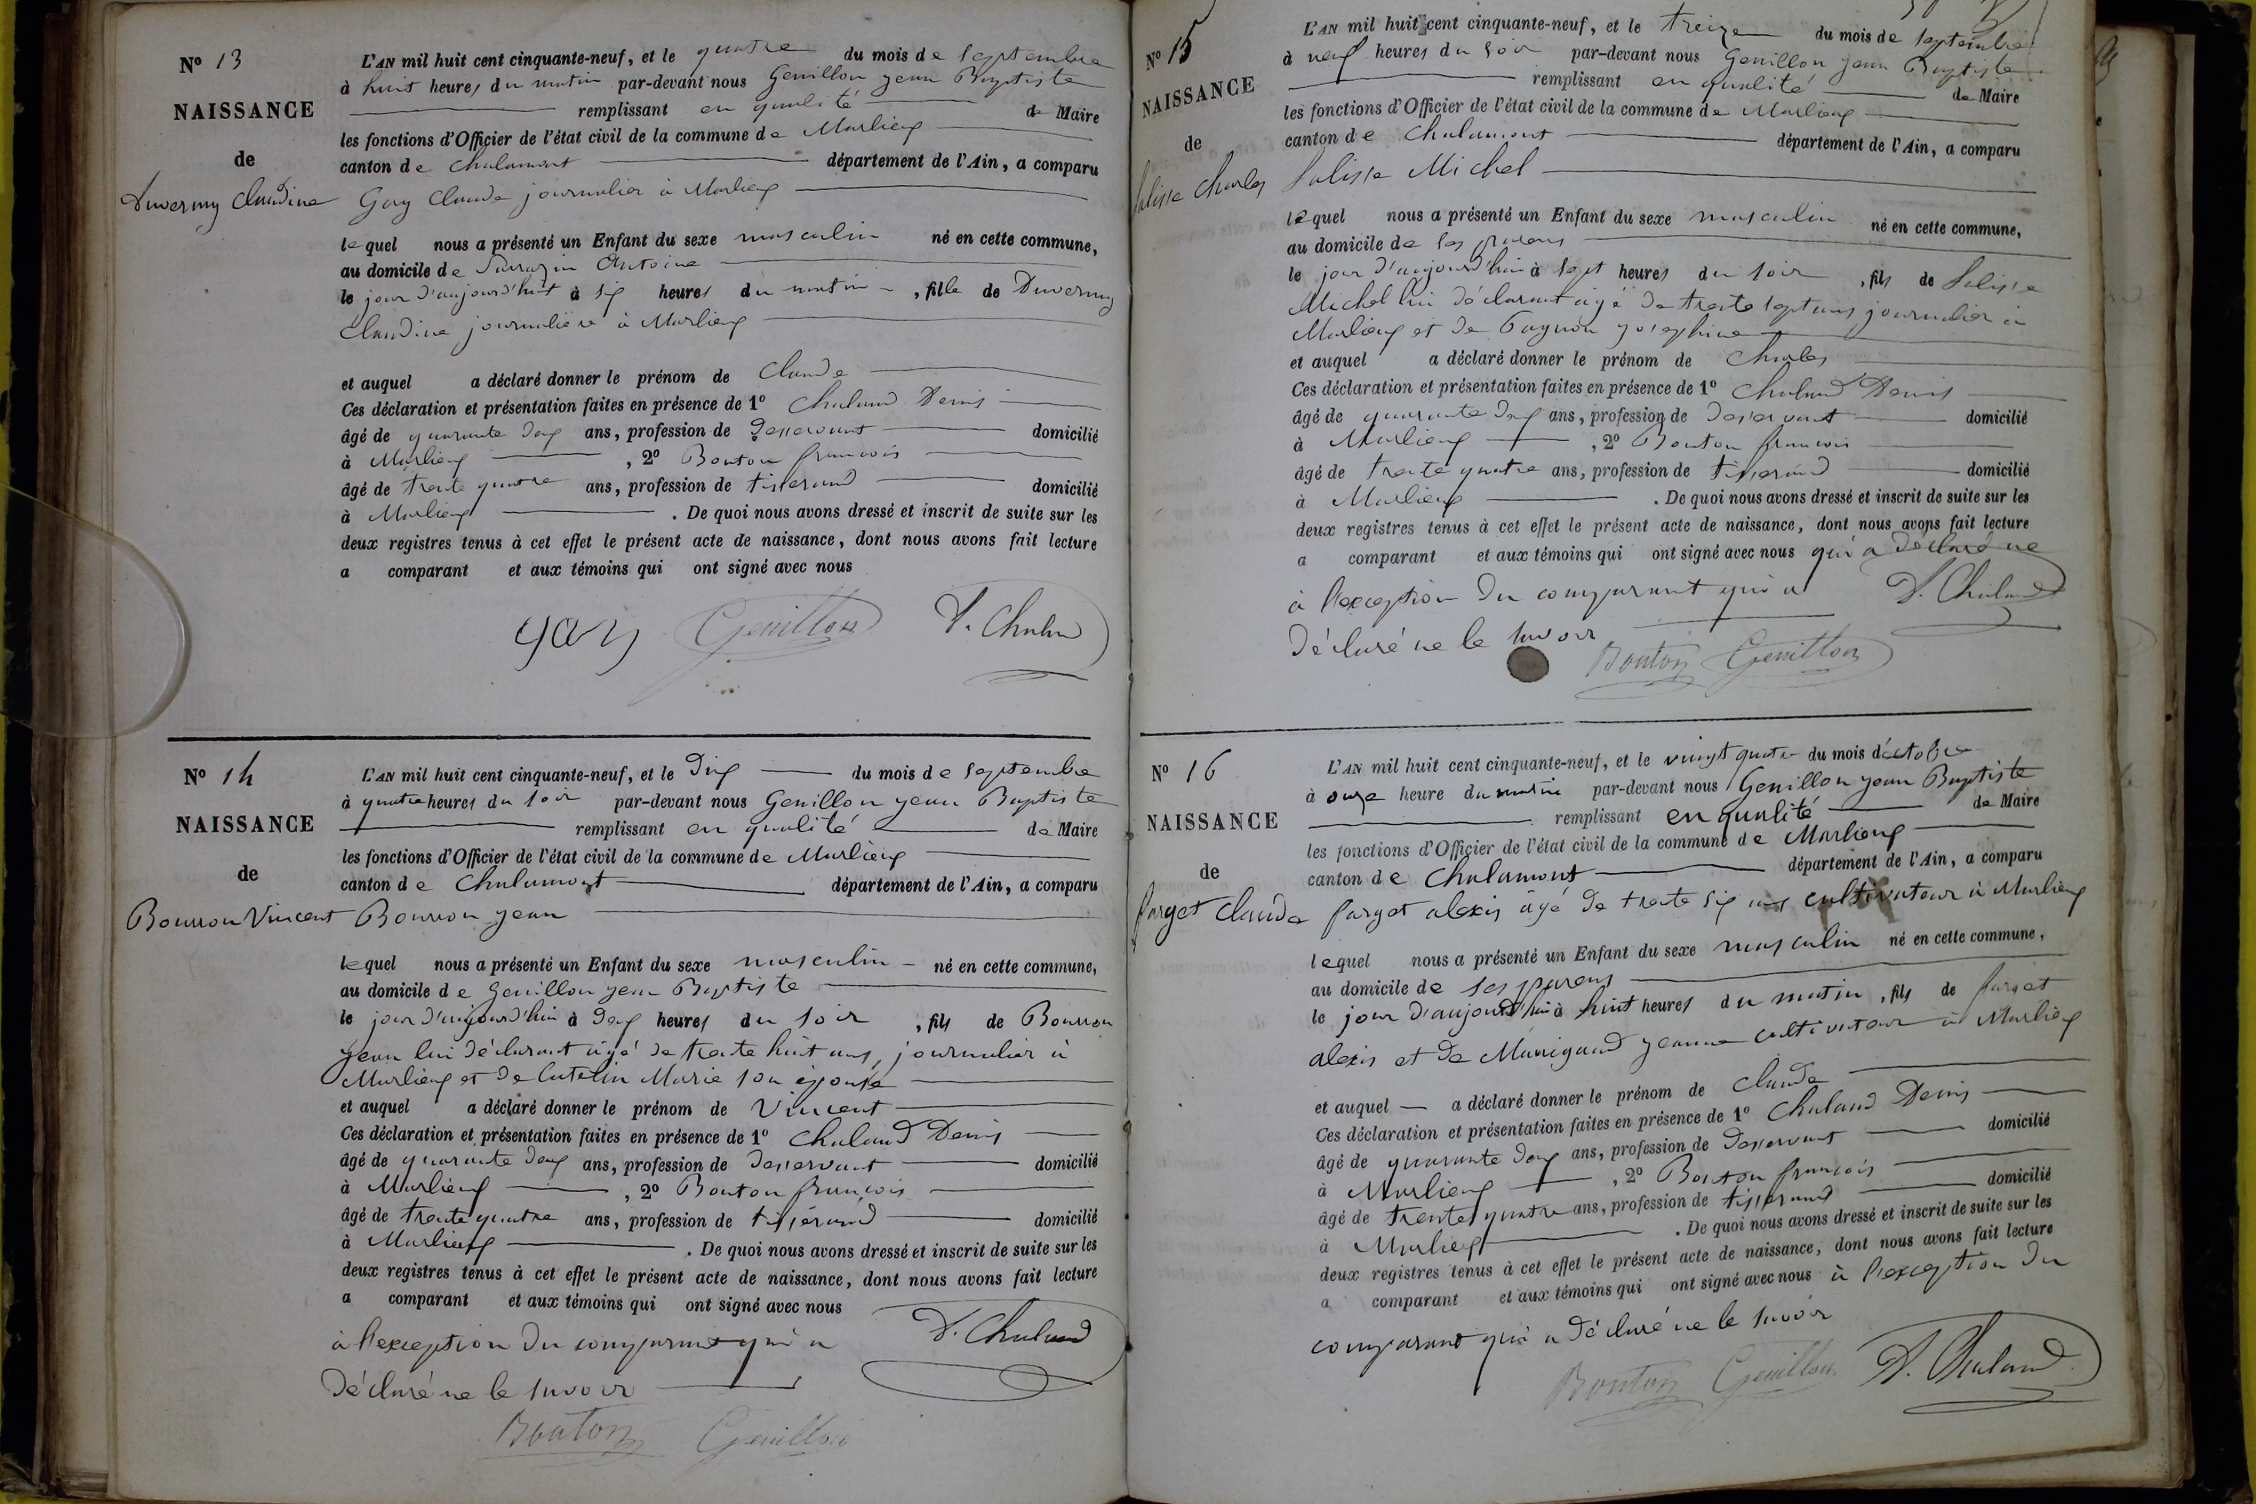 N° 13
NAISSANCE
de
Duvernay Claudine
L'AN mil huit cent cinquante-neuf, et le quatre du mois de septembre
à huit heures du matin par-devant nous Genillon jean Baptiste
remplissant en qualité de Maire
les fonctions d'Officier de l'état civil de la commune de Marlieux
canton de Chalamont département de l'Ain, a comparu
Gay Claude journalier à Marlieux
lequel nous a présenté un Enfant du sexe masculin né en cette commune,
au domicile de Sarrazin Antoine
le jour d'aujourd'huit à six heures du matin, fille de Duvernay
Claudine journalière à Marlieux
et auquel a déclaré donner le prénom de Claude
Ces déclaration et présentation faites en présence de 1° Chaland Denis
âgé de quarante deux ans, profession de desservant domicilié
à Marlieux, 2° Bouton françois
âgé de trente quatre ans, profession de tisserand domicilié
à Marlieux. De quoi nous avons dressé et inscrit de suite sur les
deux registres tenus à cet effet le présent acte de naissance, dont nous avons fait lecture
a comparant et aux témoins qui ont signé avec nous
gay Genillon D. Chaland
N° 14
NAISSANCE
de
Bourron Vincent
L'AN mil huit cent cinquante-neuf, et le Dix du mois de septembre
à quatre heures du soir par-devant nous Genillon jean Baptiste
remplissant en qualité de Maire
les fonctions d'Officier de l'état civil de la commune de Marlieux
canton de Chalamont département de l'Ain, a comparu
Bourron jean
lequel nous a présenté un Enfant du sexe masculin né en cette commune,
au domicile de Genillon jean Baptiste
le jour d'aujourd'hui à deux heures du soir, fils de Bourron
jean lui déclarant âgé de trente huit ans, journalier à
Marlieux et de Catelin Marie son épouse
et auquel a déclaré donner le prénom de Vincent
Ces déclaration et présentation faites en présence de 1° Chaland Denis
âgé de quarante deux ans, profession de desservant domicilié
à Marlieux, 2° Bouton françois
âgé de trente quatre ans, profession de tisserand domicilié
à Marlieux. De quoi nous avons dressé et inscrit de suite sur les
deux registres tenus à cet effet le présent acte de naissance, dont nous avons fait lecture
a comparant et aux témoins qui ont signé avec nous
à l'exception du comparant qui a D. Chaland
déclaré ne le savoir
Bouton Genillon
N° 15
NAISSANCE
de
Salisse Charles
L'AN mil huit cent cinquante-neuf, et le treize du mois de septembre
à neuf heures du soir par-devant nous Genillon jean Baptiste
remplissant en qualité de Maire
les fonctions d'Officier de l'état civil de la commune de Marlieux
canton de Chalamont département de l'Ain, a comparu
Salisse Michel
lequel nous a présenté un Enfant du sexe masculin né en cette commune,
au domicile de ses parens
le jour d'aujourd'hui à sept heures du soir, fils de Salisse
Michel lui déclarant âgé de trente sept ans journalier à
Marlieux et de Gagnon josephine
et auquel a déclaré donner le prénom de Charles
Ces déclaration et présentation faites en présence de 1° Chaland Denis
âgé de quarante deux ans, profession de desservant domicilié
à Marlieux, 2° Bouton francois
âgé de trente quatre ans, profession de tisserand domicilié
à Marlieux. De quoi nous avons dressé et inscrit de suite sur les
deux registres tenus à cet effet le présent acte de naissance, dont nous avons fait lecture
a comparant et aux témoins qui ont signé avec nous qui a déclaré ne
à l'exception du comparant qui a D. Chaland
déclaré ne le savoir
Bouton Genillon
N° 16
NAISSANCE
de
farget Claude
L'AN mil huit cent cinquante-neuf, et le vingt quatre du mois d'octobre
à onze heure du matin par-devant nous Genillon jean Baptiste
remplissant en qualité de Maire
les fonctions d'Officier de l'état civil de la commune de Marlieux
canton de Chalamont département de l'Ain, a comparu
farget alexis âgé de trente six ans cultivateur à Marlieux
lequel nous a présenté un Enfant du sexe masculin né en cette commune,
au domicile de ses parens
le jour d'aujourd'hui à huit heures du matin, fils de farget
alexis et de Manigand jeanne cultivateur à Marlieux
et auquel a déclaré donner le prénom de Claude
Ces déclaration et présentation faites en présence de 1° Chaland Denis
âgé de quarante deux ans, profession de desservant domicilié
à Marlieux, 2° Bouton françois
âgé de trente quatre ans, profession de tisserand domicilié
à Marlieux. De quoi nous avons dressé et inscrit de suite sur les
deux registres tenus à cet effet le présent acte de naissance, dont nous avons fait lecture
a comparant et aux témoins qui ont signé avec nous à l'exception du
comparant qui a déclaré ne le savoir
Bouton Genillon D. Chaland